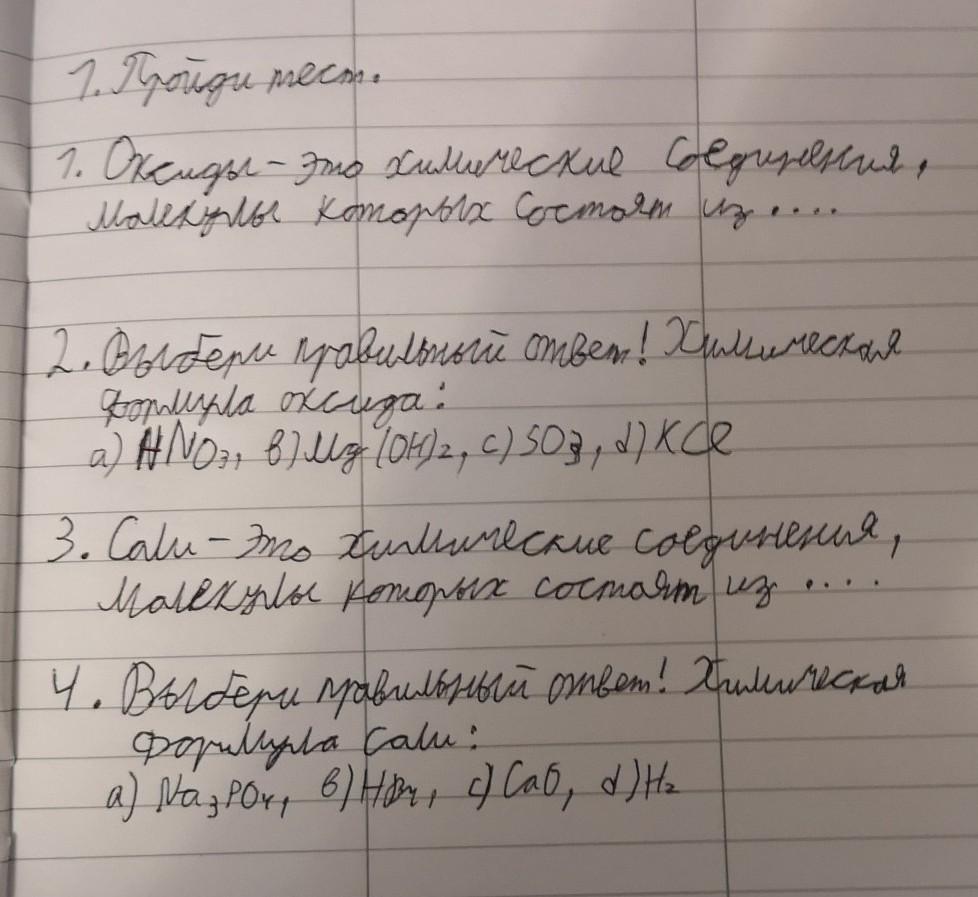 1. Пройди тест.
1. Оксиды - это химические соединения,
малекулы которых состоят из ....
2. Выбери правильный ответ! Химическая
формула оксида:
a) HNO₃, в) Mg(OH)₂, c) SO₃, d) KCl
3. Сали - это химические соединения,
малекулы которых состоят из ....
4. Выбери правильный ответ! Химическая
формула сали:
a) Na₃PO₄, в) HBr, c) CaO, d) H₂